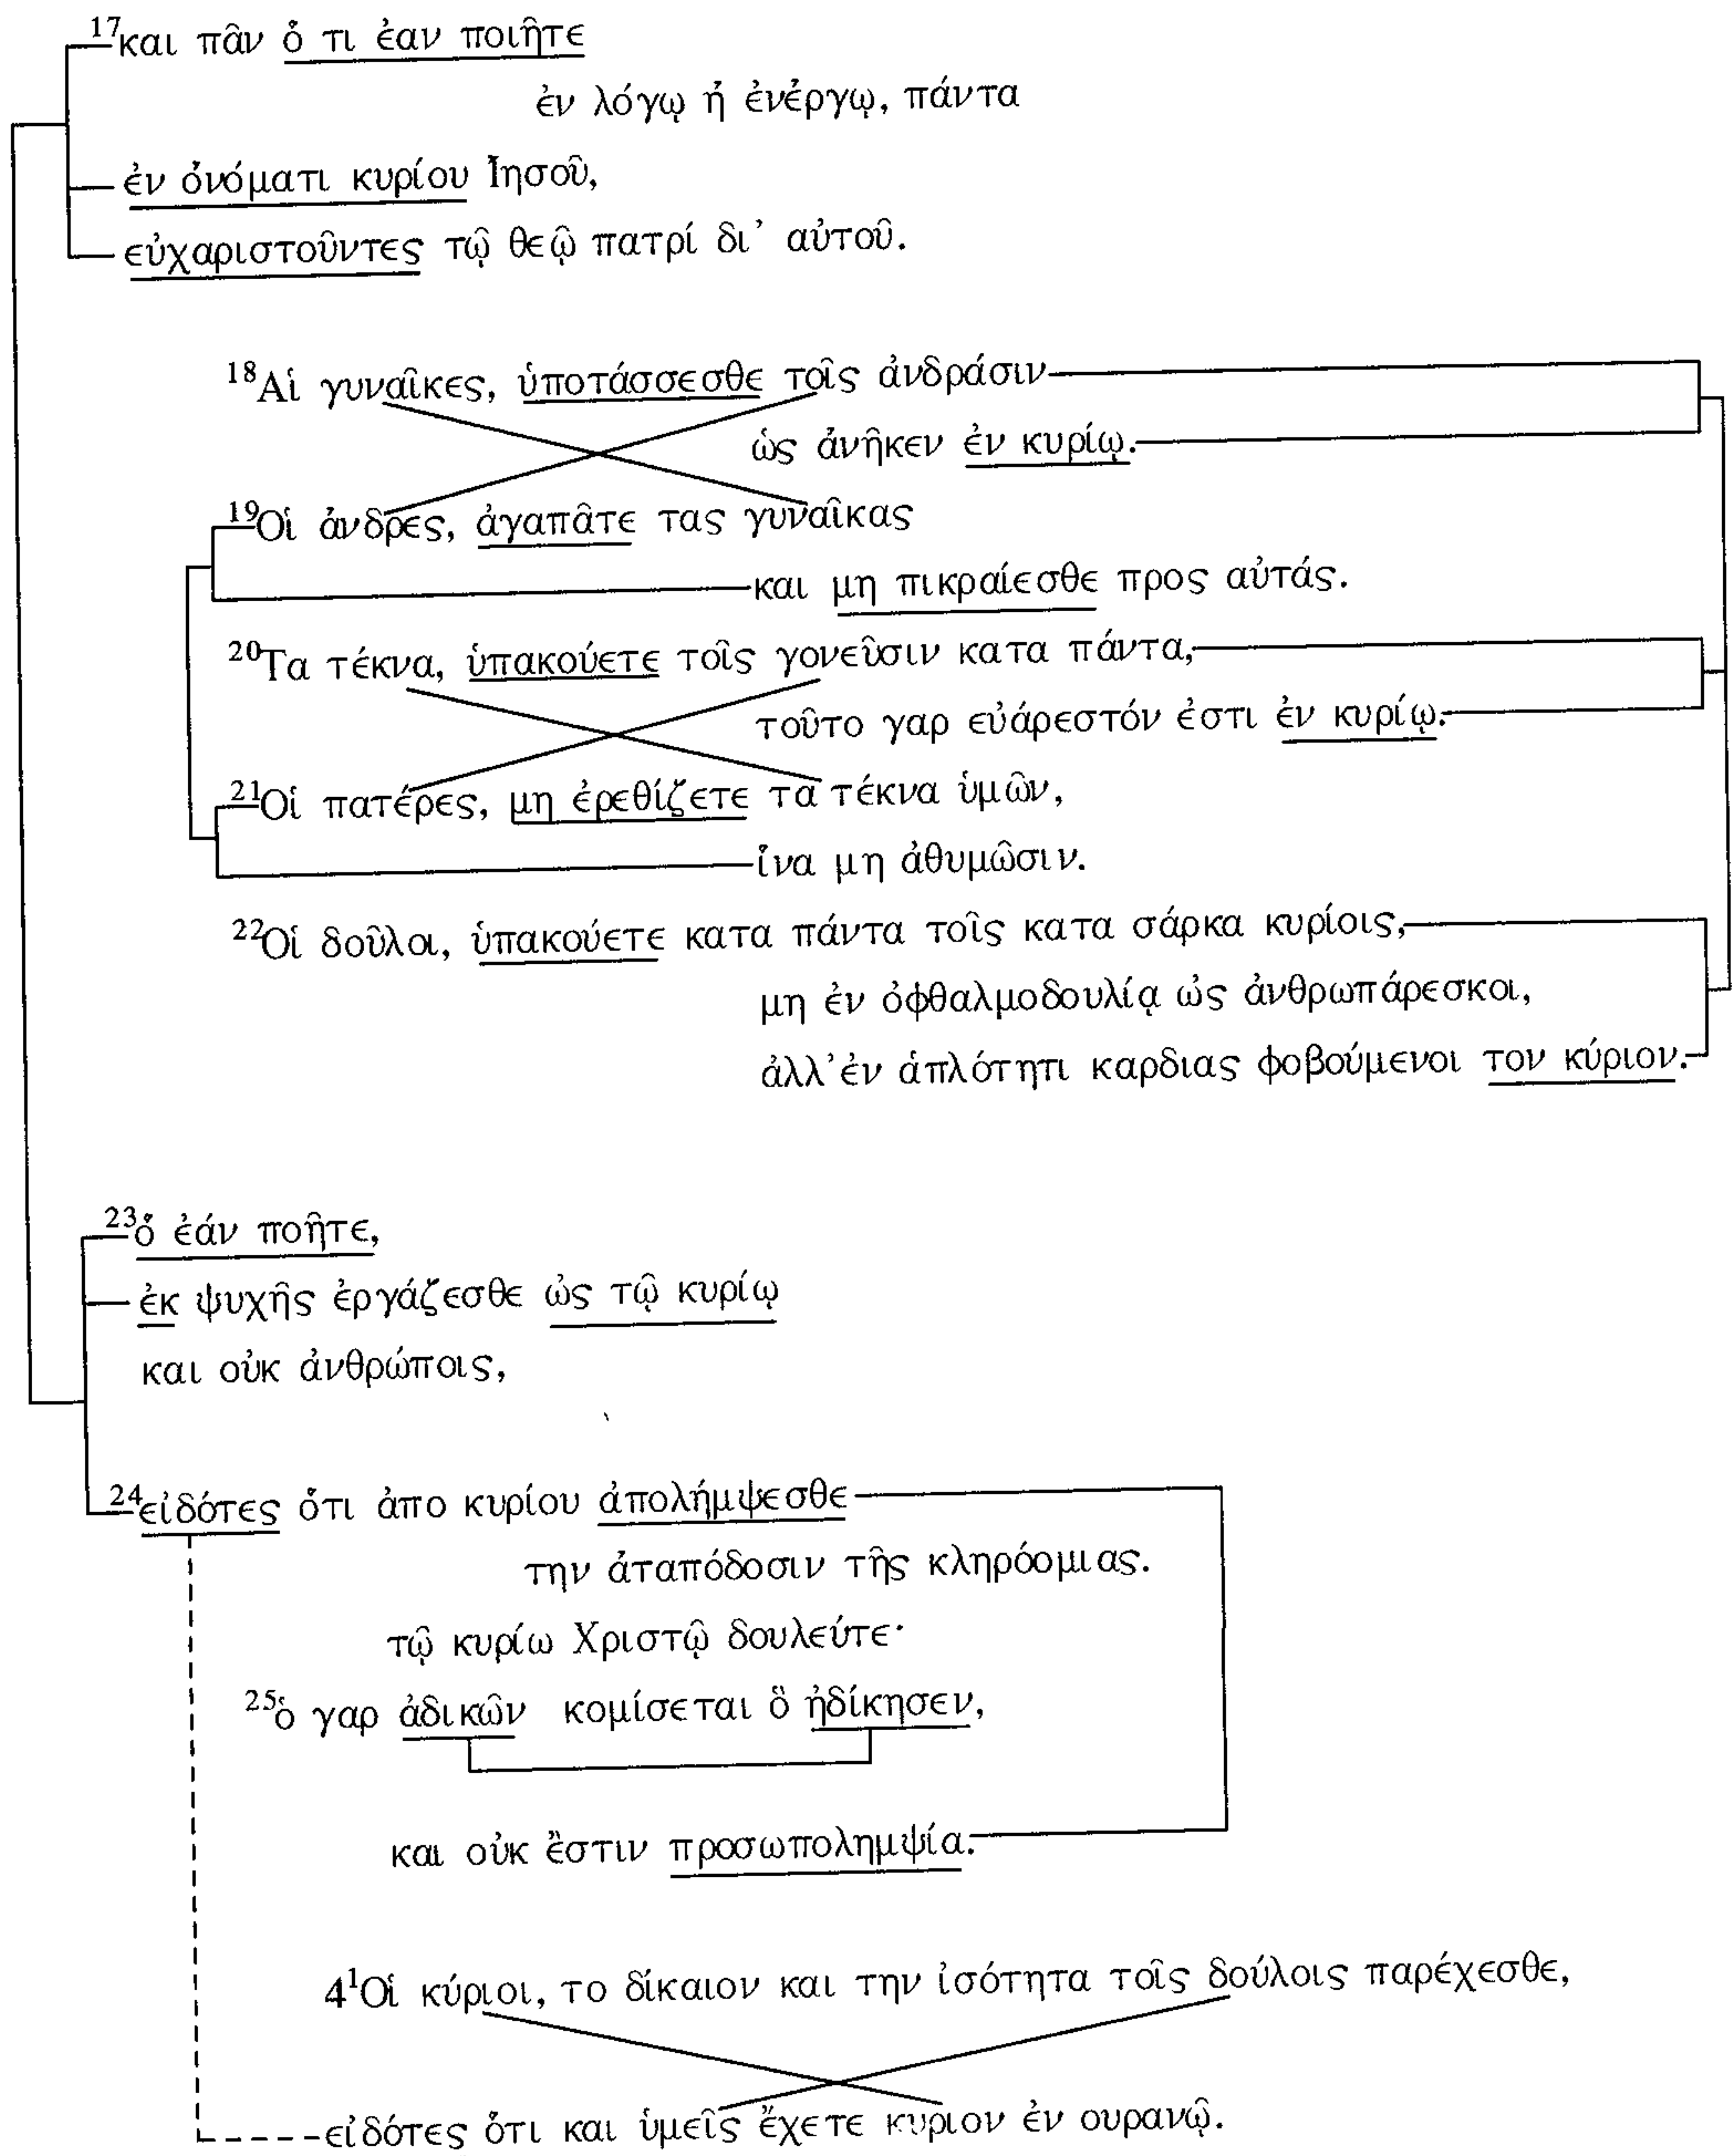 17και πᾶν ὅ τι ἐαν ποιῆτε
ἐν λόγῳ ἤ ἐνἔργῳ, πάντα
ἐν ὀνόματι κυρίου Ἰησοῦ,
εὐχαριστοῦντες τῷ θεῷ πατρί δι᾽ αὐτοῦ.
18Αἱ γυναῖκες, ὑποτάσσεσθε τοῖς ἀνδράσιν
ὡς ἀνῆκεν ἐν κυρίῳ.
19Οἱ ἄνδρες, ἀγαπᾶτε τας γυναῖκας
και μη πικραίεσθε προς αὐτάς.
20Τα τέκνα, ὑπακούετε τοῖς γονεῦσιν κατα πάντα,
τοῦτο γαρ εὐάρεστόν ἐστι ἐν κυρίῳ.
21Οἱ πατέρες, μη ἐρεθίζετε τα τέκνα ὑμῶν,
ἵνα μη ἀθυμῶσιν.
22Οἱ δοῦλοι, ὑπακούετε κατα πάντα τοῖς κατα σάρκα κυρίοις,
μη ἐν ὀφθαλμοδουλίᾳ ὡς ἀνθρωπάρεσκοι,
ἀλλ᾽ἐν ἁπλότητι καρδιας φοβούμενοι τον κύριον.
23ὅ ἐάν ποῆτε,
ἐκ ψυχῆς ἐργάζεσθε ὡς τῷ κυρίῳ
και οὐκ ἀνθρώποις,
24εἰδότες ὅτι ἀπο κυρίου ἀπολήμψεσθε
την ἀταπόδοσιν τῆς κληρόομιας.
τῷ κυρίω Χριστῷ δουλεύτε·
25ὁ γαρ ἀδικῶν κομίσεται ὃ ἠδίκησεν,
και οὐκ ἔστιν προσωπολημψία.
41Οἱ κύριοι, το δίκαιον και την ἰσότητα τοῖς δούλοις παρέχεσθε,
εἰδότες ὅτι και ὑμεῖς ἔχετε κυριον ἐν ουρανῷ.